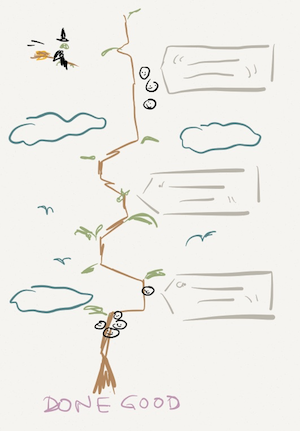 DONE GOOD